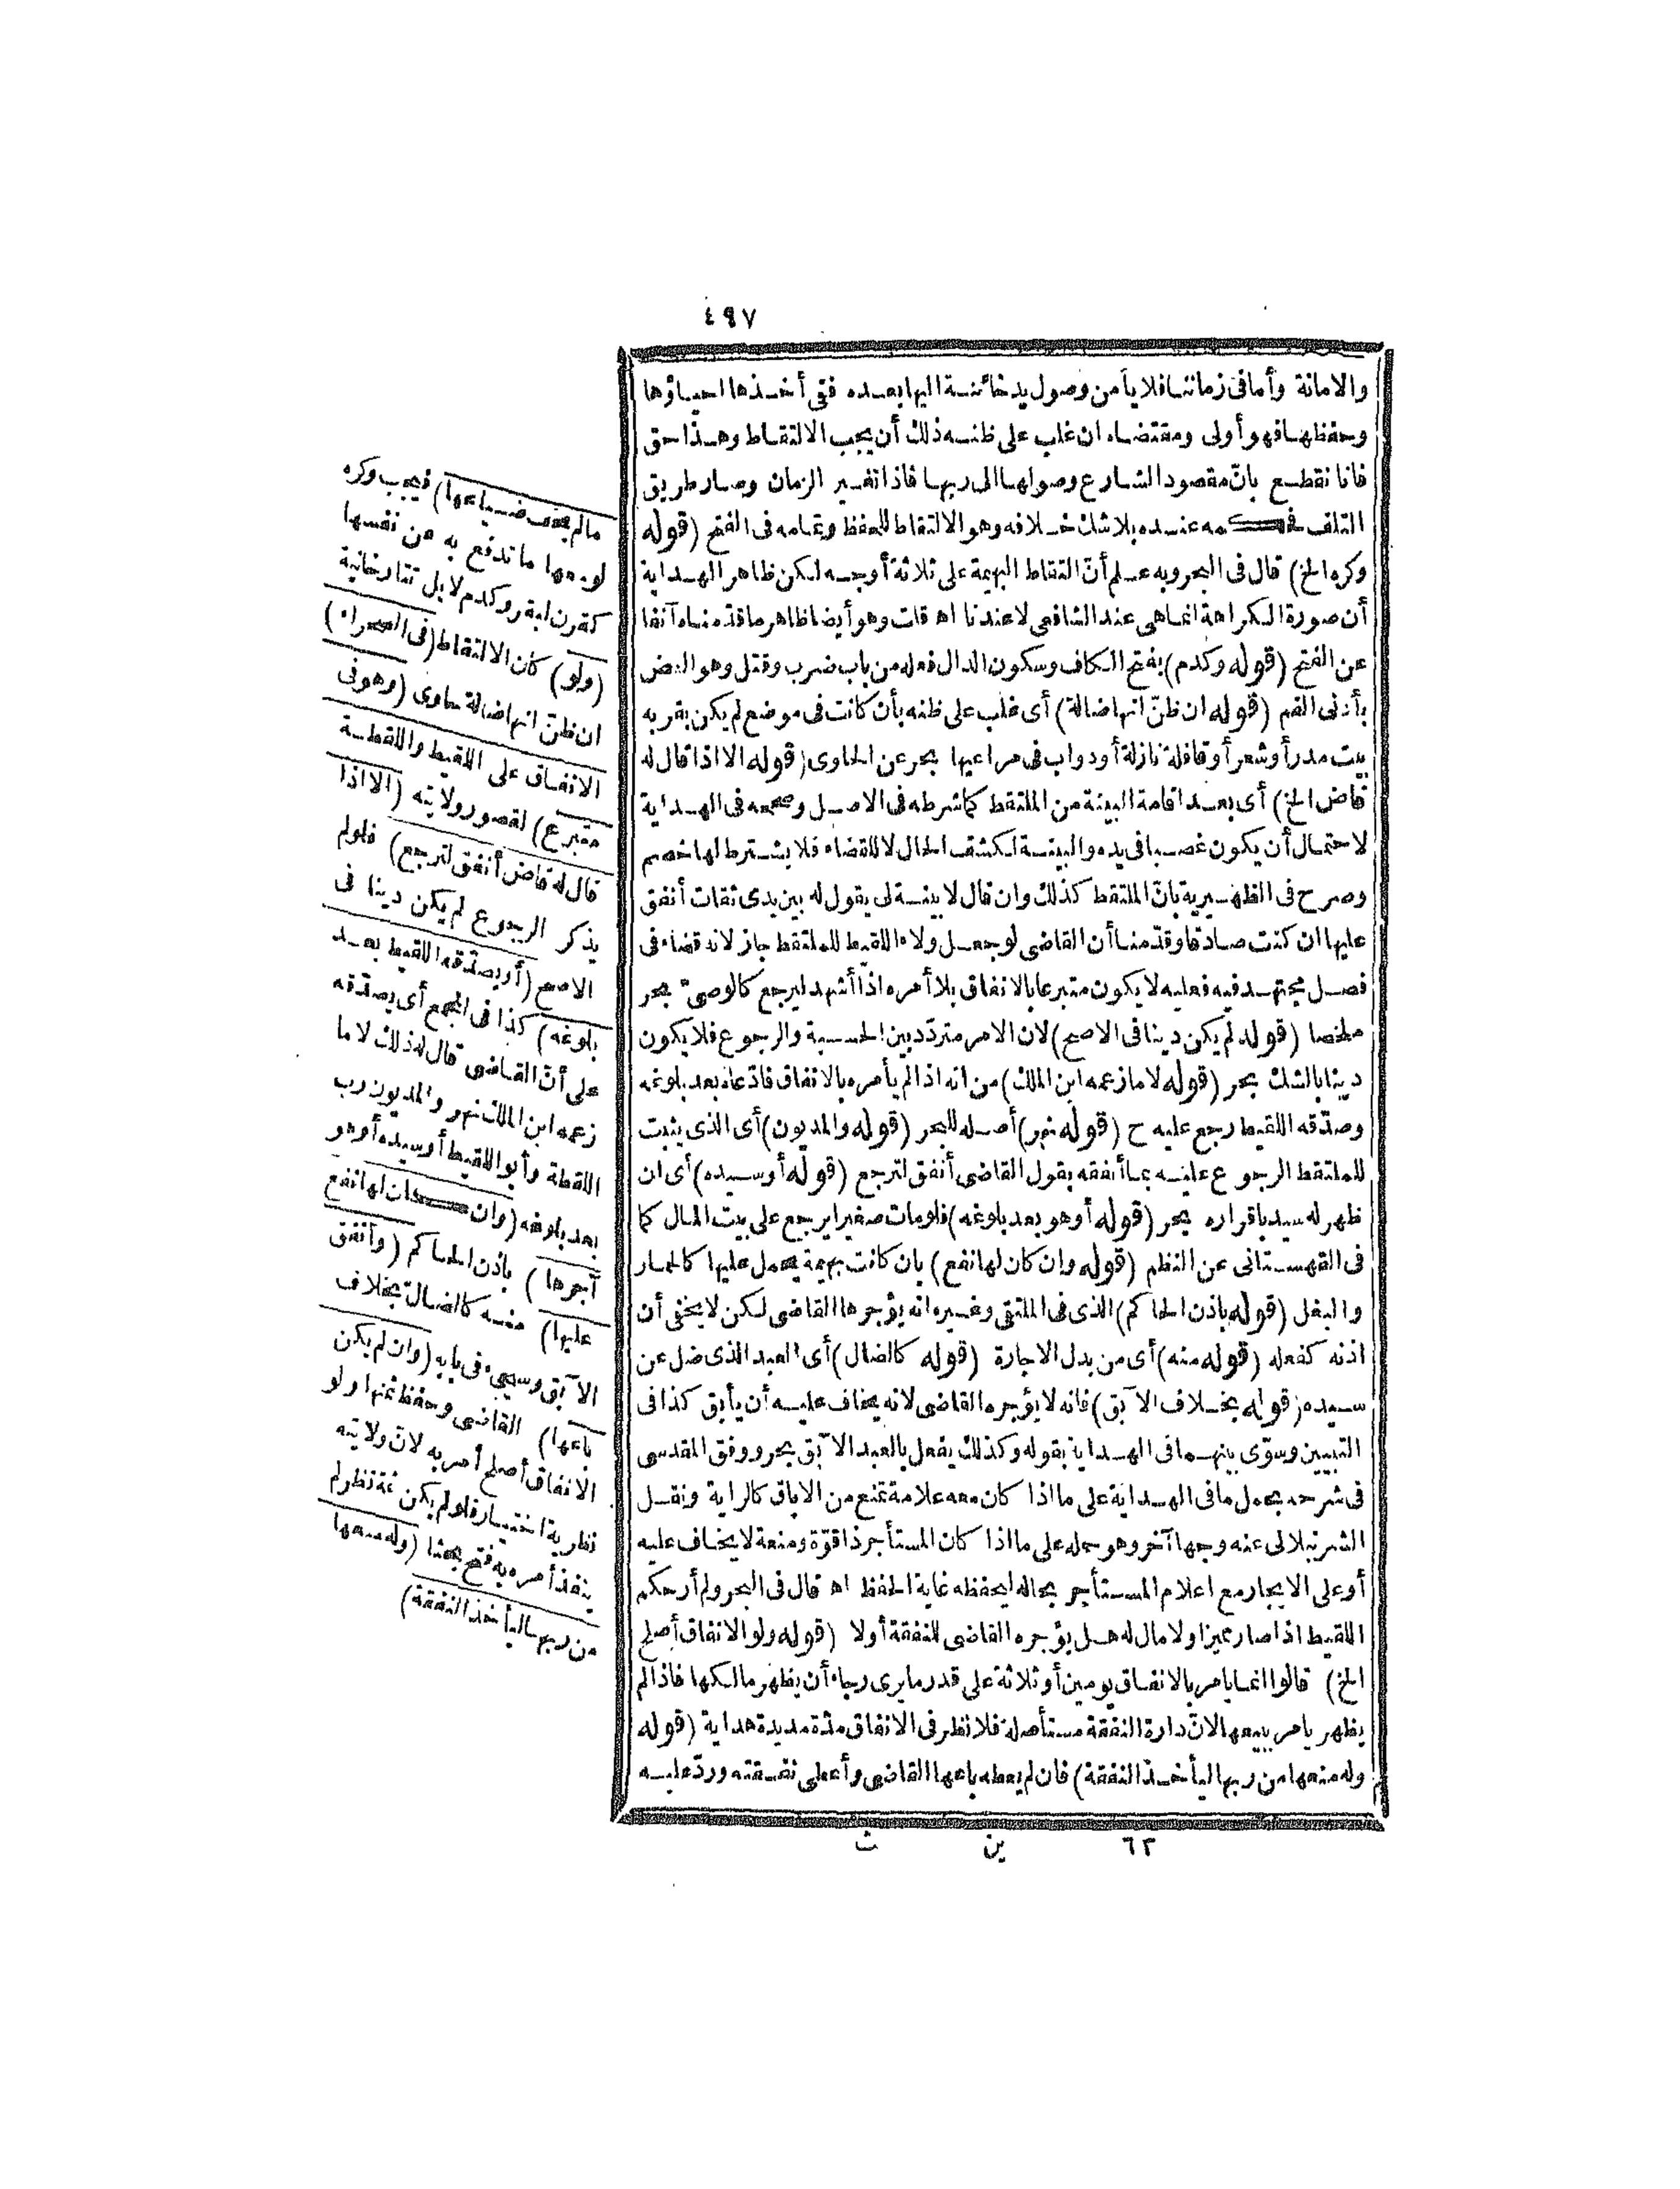 ٤٩٧
والامانة وأما فى زماننا فلا يأمن وصول يد خائنة اليها بعده ففى أخذها احياؤها
وحفظها فهو أولى ومقتضاه ان غلب على ظنه ذلك أن يجب الالتقاط وهذا حق
فانا نقطع بان مقصود الشارع وصولها الى ربها فاذا تغير الزمان وصار طريق
التلف فحكمه عنده بلا شك خلافه وهو الالتقاط للحفظ وتمامه فى الفتح (قوله
وكره الخ) قال فى البحر وبه علم أن التقاط البهيمة على ثلاثة أوجه لكن ظاهر الهداية
أن صورة الكراهة انما هى عند الشافعى لا عندنا اه قلت وهو أيضا ظاهر ما قدمناه آنفا
عن الفتح (قوله وكدم) بفتح الكاف وسكون الدال فعله من باب ضرب وقتل وهو العض
بأدنى الفم (قوله ان ظنّ انها ضالة) أى غلب على ظنه بأن كانت فى موضع لم يكن بقربه
بيت مدر أو شعر أو قافلة نازلة أو دواب فى مراعيها بحر عن الحاوى (قوله الا اذا قال له
قاض الخ) أى بعد اقامة البينة من الملتقط كما شرطه فى الاصل وصححه فى الهداية
لاحتمال أن يكون غصبا فى يده والبينة لكشف الحال لا للقضاء فلا يشترط لها خصم
وصرح فى الظهيرية بانّ الملتقط كذلك وان قال لا بينة لى يقول له بين يدى ثقات أنفق
عليها ان كنت صادقا وقدّمنا أن القاضى لو جعل ولاء اللقيط للملتقط جاز لانه قضاء فى
فصل مجتهد فيه فعليه لا يكون متبرعا بالانفاق بلا أمره اذا أشهد ليرجع كالوصىّ بحر
ملخصا (قوله لم يكن دينا فى الاصح) لان الامر متردّد بين الحسبة والرجوع فلا يكون
دينا بالشك بحر (قوله لا ما زعمه ابن الملك) من انه اذا لم يأمره بالانفاق فادّعاه بعد بلوغه
وصدّقه اللقيط رجع عليه ح (قوله نهر) أصله للبحر (قوله والمديون) أى الذى يثبت
للملتقط الرجوع عليه بما أنفقه بقول القاضى أنفق لترجع (قوله أو سيده) أى ان
ظهر له سيد باقراره بحر (قوله أو هو بعد بلوغه) فلو مات صغيرا يرجع على بيت المال كما
فى القهستانى عن النظم (قوله وان كان لها نفع) بان كانت بهيمة يحمل عليها كالحمار
والبغل (قوله باذن الحاكم) الذى فى الملتقى وغيره انه يؤجرها القاضى لكن لا يخفى أن
اذنه كفعله (قوله منه) أى من بدل الاجارة (قوله كالضال) أى العبد الذى ضل عن
سيده (قوله بخلاف الآبق) فانه لا يؤجره القاضى لانه يخاف عليه أن يأبق كذا فى
التبيين وسوّى بينهما فى الهداية بقوله وكذلك يفعل بالعبد الآبق بحر ووفق المقدسى
فى شرحه بحمل ما فى الهداية على ما اذا كان معه علامة تمنع من الاباق كالراية ونقل
الشرنبلالى عنه وجها آخر وهو حمله على ما اذا كان المستأجر ذا قوّة ومنعة لا يخاف عليه
أو على الايجار مع اعلام المستأجر بحاله ليحفظه غاية الحفظ اه قال فى البحر ولم أر حكم
اللقيط اذا صار مميزا ولا مال له هل يؤجره القاضى للنفقة أولا (قوله ولو الانفاق أصلح
الخ) قالوا انما يامر بالانفاق يومين أو ثلاثة على قدر ما يرى رجاء أن يظهر مالكها فاذا لم
يظهر يامر ببيعها لانّ دارة النفقة مستأصلة فلا نظر فى الانفاق مدّة مديدة هداية (قوله
وله منعها من ربها ليأخذ النفقة) فان لم يعطه باعها القاضى وأعطى نفقته وردّ عليه
مالم يخف ضياعها) فيجب وكره
لو معها ما تدفع به عن نفسها
كقرن لبقر وكدم لابل تتارخانية
(ولو) كان الالتقاط (فى الصحراء)
ان ظنّ انها ضالة حاوى (وهو فى
الانفاق على اللقيط واللقطة
متبرع) لقصور ولايته (الا اذا
قال له قاض أنفق لترجع) فلو لم
يذكر الرجوع لم يكن دينا فى
الاصح (أو يصدّقه اللقيط بعد
بلوغه) كذا فى المجمع أى يصدّقه
على أنّ القاضى قال له ذلك لا ما
زعمه ابن الملك نهر والمديون رب
اللقطة وأبو اللقيط أو سيده أو هو
بعد بلوغه (وان كان لها نفع
آجرها) باذن الحاكم (وأنفق
عليها) منه كالضالّ بخلاف
الآبق وسيجىء فى بابه (وان لم يكن
باعها) القاضى وحفظ ثمنها ولو
الانفاق أصلح أمر به لانّ ولايته
نظرية اختيار فلو لم يكن ثمة نظر لم
ينفذ أمره به فتح بحثا (وله منعها
من ربها ليأخذ النفقة)
٦٣ ين ث